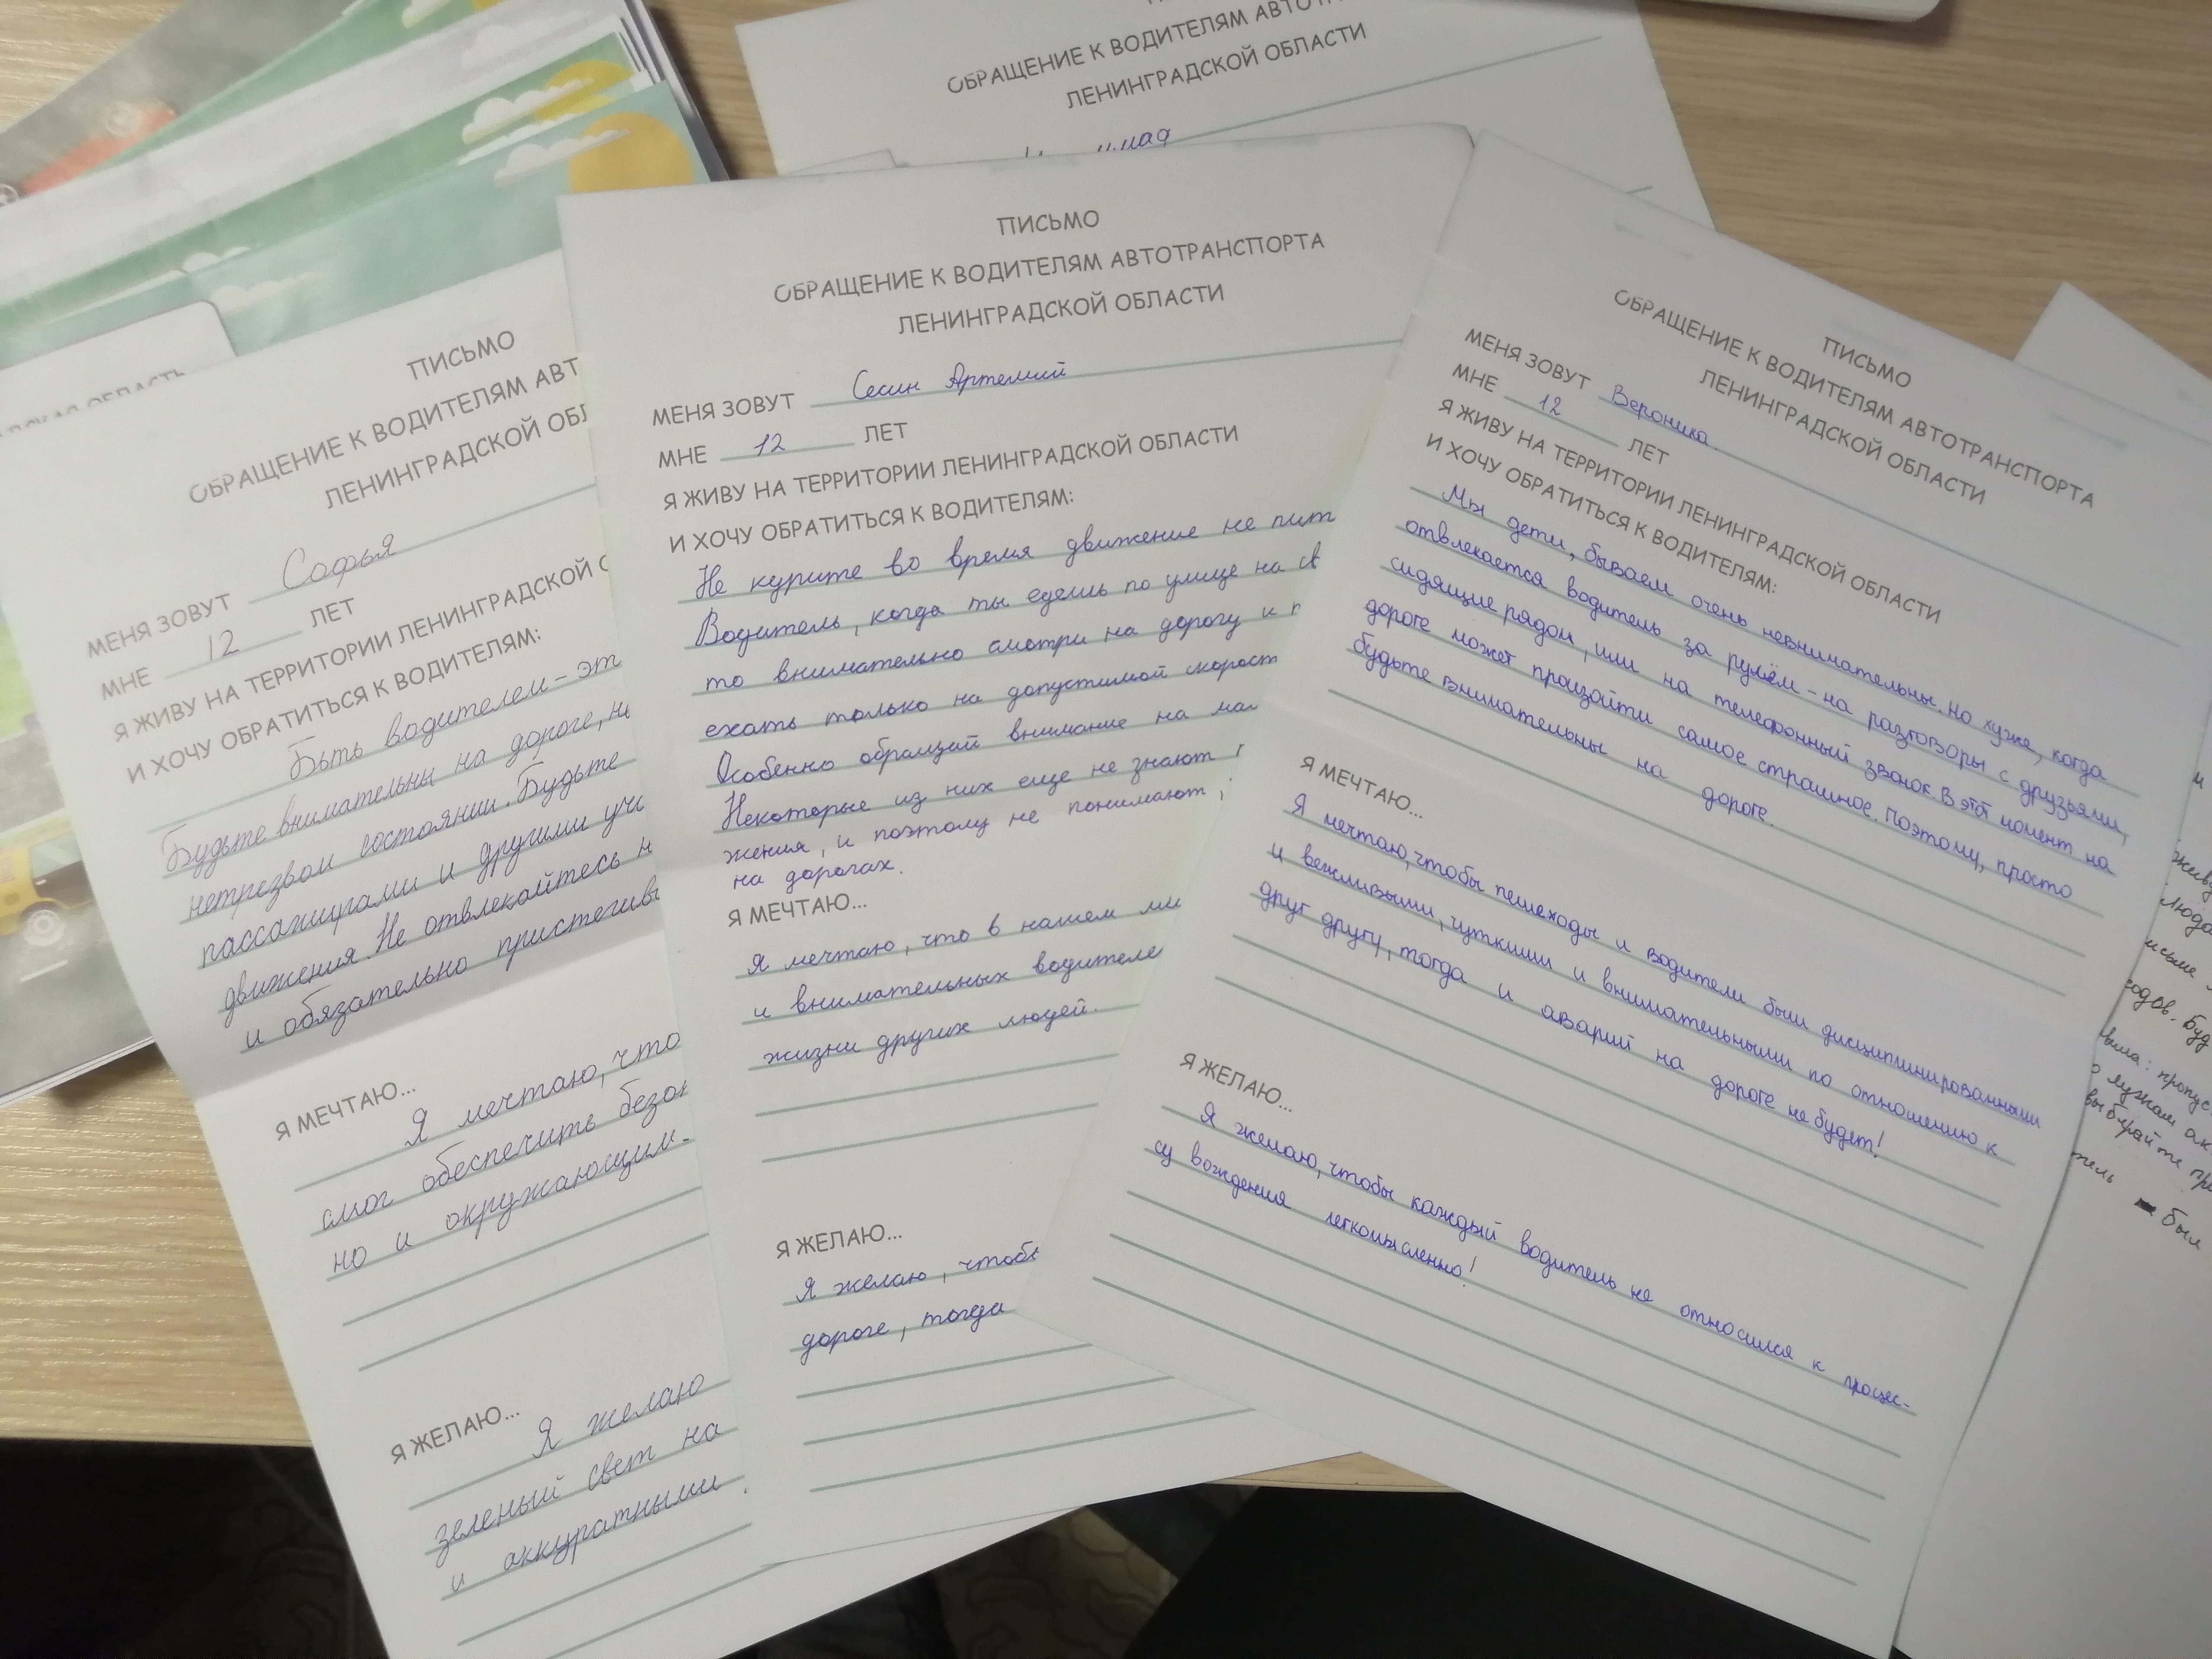 ОБРАЩЕНИЕ К ВОДИТЕЛЯМ
ЛЕНИНГРАДСКОЙ ОБЛАСТИ
ПИСЬМО
ОБРАЩЕНИЕ К ВОДИТЕЛЯМ АВТ
ЛЕНИНГРАДСКОЙ ОБЛ
МЕНЯ ЗОВУТ Софья
МНЕ 12 ЛЕТ
Я ЖИВУ НА ТЕРРИТОРИИ ЛЕНИНГРАДСКОЙ О
И ХОЧУ ОБРАТИТЬСЯ К ВОДИТЕЛЯМ:
Быть водителем - эт
Будьте внимательны на дороге, не
нетрезвом состоянии. Будьте
пассажирами и другими уча
движения. Не отвлекайтесь н
и обязательно пристегива
Я МЕЧТАЮ...
Я мечтаю, что
смог обеспечить безоп
но и окружающим.
Я ЖЕЛАЮ...
Я желаю
зеленый свет на
и аккуратными
ПИСЬМО
ОБРАЩЕНИЕ К ВОДИТЕЛЯМ АВТОТРАНСПОРТА
ЛЕНИНГРАДСКОЙ ОБЛАСТИ
МЕНЯ ЗОВУТ Сесин Артемий
МНЕ 12 ЛЕТ
Я ЖИВУ НА ТЕРРИТОРИИ ЛЕНИНГРАДСКОЙ ОБЛАСТИ
И ХОЧУ ОБРАТИТЬСЯ К ВОДИТЕЛЯМ:
Не курите во время движение не пит
Водитель, когда ты едешь по улице на св
то внимательно смотри на дорогу и п
ехать только на допустимой скорост
Особенно обращай внимание на мал
Некоторые из них еще не знают п
жения, и поэтому не понимают
на дорогах.
Я МЕЧТАЮ...
Я мечтаю, что в нашем ми
и внимательных водителе
жизни других людей.
Я ЖЕЛАЮ...
Я желаю, чтобы
дороге, тогда
ПИСЬМО
ОБРАЩЕНИЕ К ВОДИТЕЛЯМ АВТОТРАНСПОРТА
ЛЕНИНГРАДСКОЙ ОБЛАСТИ
МЕНЯ ЗОВУТ Вероника
МНЕ 12 ЛЕТ
Я ЖИВУ НА ТЕРРИТОРИИ ЛЕНИНГРАДСКОЙ ОБЛАСТИ
И ХОЧУ ОБРАТИТЬСЯ К ВОДИТЕЛЯМ:
Мы дети, бываем очень невнимательны. Но хуже, когда
отвлекается водитель за рулём - на разговоры с друзьями,
сидящие рядом, или на телефонный звонок. В этот момент на
дороге может произойти самое страшное. Поэтому, просто
будьте внимательны на дороге.
Я МЕЧТАЮ...
Я мечтаю, чтобы пешеходы и водители были дисциплинированными
и вежливыми, чуткими и внимательными по отношению к
друг другу, тогда и аварий на дороге не будет!
Я ЖЕЛАЮ...
Я желаю, чтобы каждый водитель не относился к процес-
су вождения легкомысленно!
годов. Буд
выбирайте пр
тель был